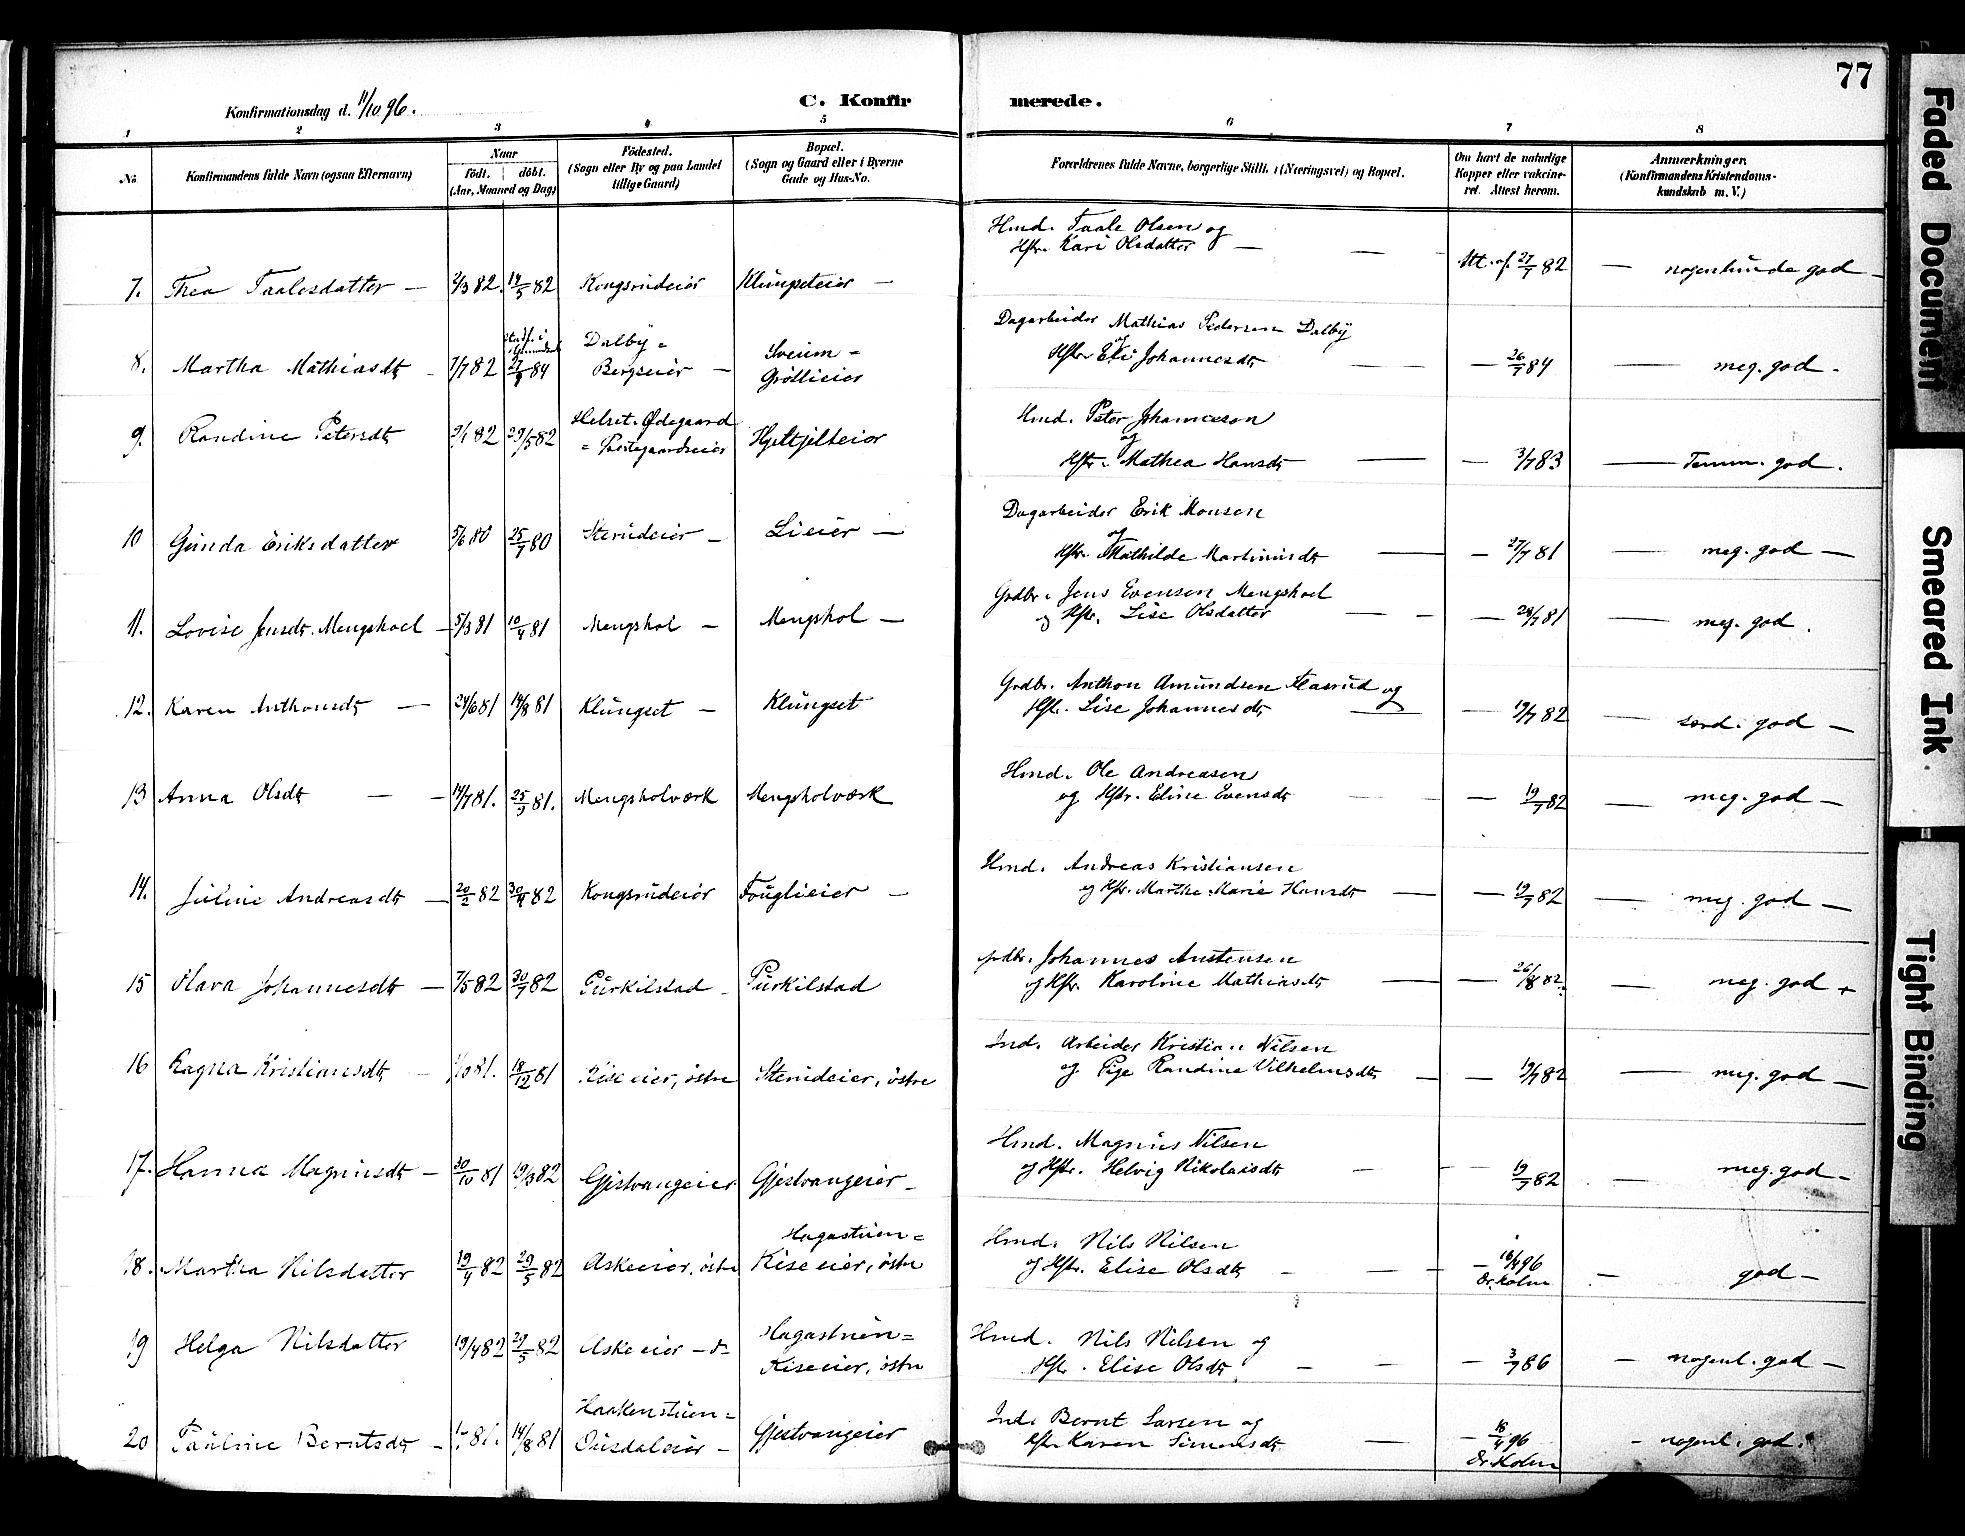 77
Konfirmationsdag d. 11/10 96.
C. Konfirmerede.
1 2 3 4 5 6 7 8
No
Konfirmandens fulde Navn (ogsaa Efternavn)
Naar
födt. döbt.
(Aar, Maaned og Dag)
Födested.
(Sogn eller By og paa Landet
tillige Gaard)
Bopæl.
(Sogn og Gaard eller i Byerne
Gade og Hus-No.
Forældrenes fulde Navne, borgerlige Stilling (Næringsvei) og Bopæl.
Om havt de naturlige
Kopper eller vakcine-
ret. Attest herom.
Anmærkninger.
(Konfirmandens Kristendoms-
kundskab m. V.)
Hmd. Taale Olsen og
Hstr. Kari Olsdatter —
7. Thea Taalesdatter — 2/3 82. 14/5 82 Kongsrudeier Klungseteier — Att. af 27/7 82 — nogenlunde god —
Dagarbeider Mathias Pedersen Dalby
og
8. Martha Mathiasdt. 1/7 82 27/9 84 Dalby = Bergseier — Sveum = Gröttieier Hstr. Eli Johannesdt. — 26/7 84 — meg. god -
Hmd. Peter Johannesen
og
9. Randine Petersdt. 82 29/5 82 Helset-Ødegaard = Præstegaardseier Hjeltjelteier Hstr. Mathea Hansdt. — 3/7 83 — Temm. god.
Dagarbeider Erik Monsen
og
10 Gunda Eriksdatter 5/6 80 25/7 80 Sterudeier — Lieier — Hstr. Mathilde Martinusdt. — 27/7 81 — meg. god —
Grdbr. Jens Evensen Mengshoel
11. Lovise Jensdt. Mengshoel 5/3 81 10/4 81 Mengshol — Mengshol — og Hstr. Lise Olsdatter — 28/7 81 — meg. god.
Grdbr. Anthon Amundsen Flasrud og
12. Karen Anthonsdt. — 24/6 81 14/8 81 Klungset — Klungset Hstr. Lise Johannesdt. — 19/7 82 — særd. god —
Hmd. Ole Andreasen
13 Anna Olsdt. — 14/7 81. 25/9 81. Mengsholværk Mengsholværk og Hstr. Eline Evensdt. — 19/7 82 — meg. god —
Hmd. Andreas Kristiansen
14. Juline Andreasdt. — 20/2 82 30/4 82 Kongsrudeier Fouglieier — og Hstr. Marthe Marie Hansdt. — 19/7 82 — meg. god —
Grdbr. Johannes Austensen
15 Olava Johannesdt. — 7/5 82 30/7 82 Purkilstad - Purkilstad og Hstr. Karoline Mathiasdt. — 26/8 82. — meg. god
Ind. Arbeider Kristian Nilsen
16 Ragna Kristiansdt. — 81. 18/12 81 Kiseeier, östre Sterudeier, östre og Pige Randine Vilhelmsdt. — 19/7 82 — meg. god —
Hmd. Magnus Nilsen
17. Hanna Magnusdt. — 30/10 81 19/3 82 Gjestvangeier Gjestvangeier — og Hstr. Helvig Nikolaisdt. — 19/7 82 — meg. god -
Hmd. Nils Nilsen
18. Martha Nilsdatter 19/4 82 29/5 82 Askeeier, östre Hagastuen = Kiseeier, östre og Hstr. Elise Olsdt. — 18/9 96 Dr. Holm — god —
Hmd. Nils Nilsen og
19 Helga Nilsdatter 19/4 82 29/5 82 Askeeier — Hagastuen = Kiseeier, östre Hstr. Elise Olsdt. — 3/7 86 — nogenl. god —
Ind. Bernt Larsen og
20 Pauline Berntsdt. — 81. 14/8 81 Haakenstuen = Ousdaleier — Gjestvangeier Hstr. Karen Simensdt. — 18/9 96 Dr. Holm - nogenl. god.
Faded Document
Smeared Ink.
Tight Binding